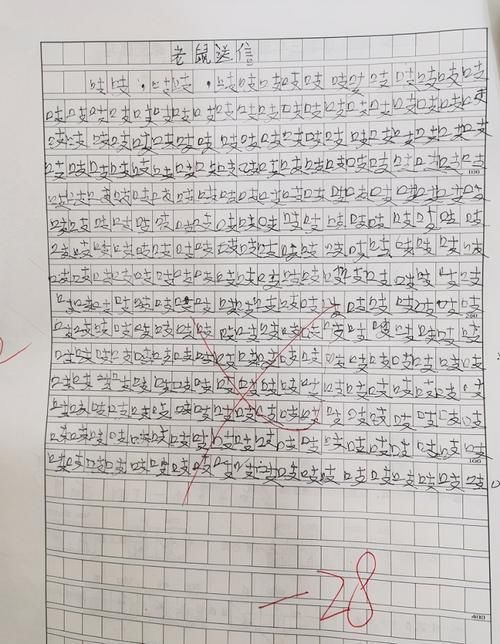 老鼠送信
吱吱：吱吱吱，吱吱吱吱吱吱吱吱吱吱吱
吱吱吱吱吱吱吱吱吱吱吱吱吱吱吱吱吱吱吱吱
吱吱吱吱吱吱吱吱吱吱吱吱吱吱吱吱吱吱吱吱
吱吱吱吱吱吱吱吱吱吱吱吱吱吱吱吱吱吱吱吱
100
吱吱吱吱吱吱吱吱吱吱吱吱吱吱吱吱吱吱吱吱
吱吱吱吱吱吱吱吱吱吱吱吱吱吱吱吱吱吱吱吱
吱吱吱吱吱吱吱吱吱吱吱吱吱吱吱吱吱吱吱吱
吱吱吱吱吱吱吱吱吱吱吱吱吱吱吱吱吱吱吱吱
吱吱吱吱吱吱吱吱吱吱吱吱吱吱吱吱吱吱吱吱
200
吱吱吱吱吱吱吱吱吱吱吱吱吱吱吱吱吱吱吱吱
吱吱吱吱吱吱吱吱吱吱吱吱吱吱吱吱吱吱吱吱
吱吱吱吱吱吱吱吱吱吱吱吱吱吱吱吱吱吱吱吱
吱吱吱吱吱吱吱吱吱吱吱吱吱吱吱吱吱吱吱吱
吱吱吱吱吱吱吱吱吱吱吱吱吱吱吱吱吱吱吱吱
吱吱吱吱吱吱吱吱吱吱吱吱吱吱吱吱吱吱吱吱
-28
400